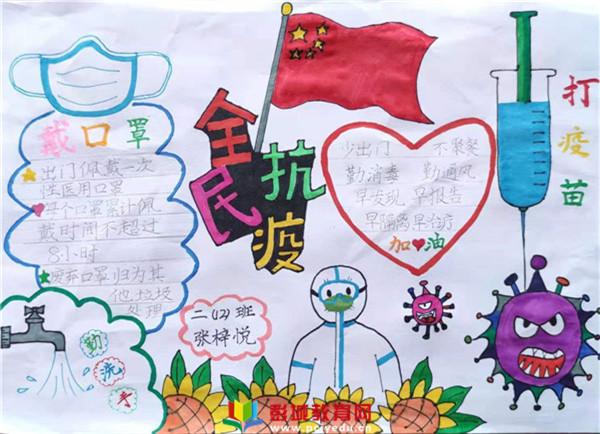 戴口罩
出门佩戴一次
性医用口罩
每个口罩累计佩
戴时间不超过
8小时
废弃口罩归为其
他垃圾
处理
勤洗手
全民
抗疫
二(12)班
张梓悦
少出门 不聚餐
勤消毒 勤通风
早发现 早报告
早隔离早治疗
加油
打疫苗
彭城教育网
www.pcjyedu.cn